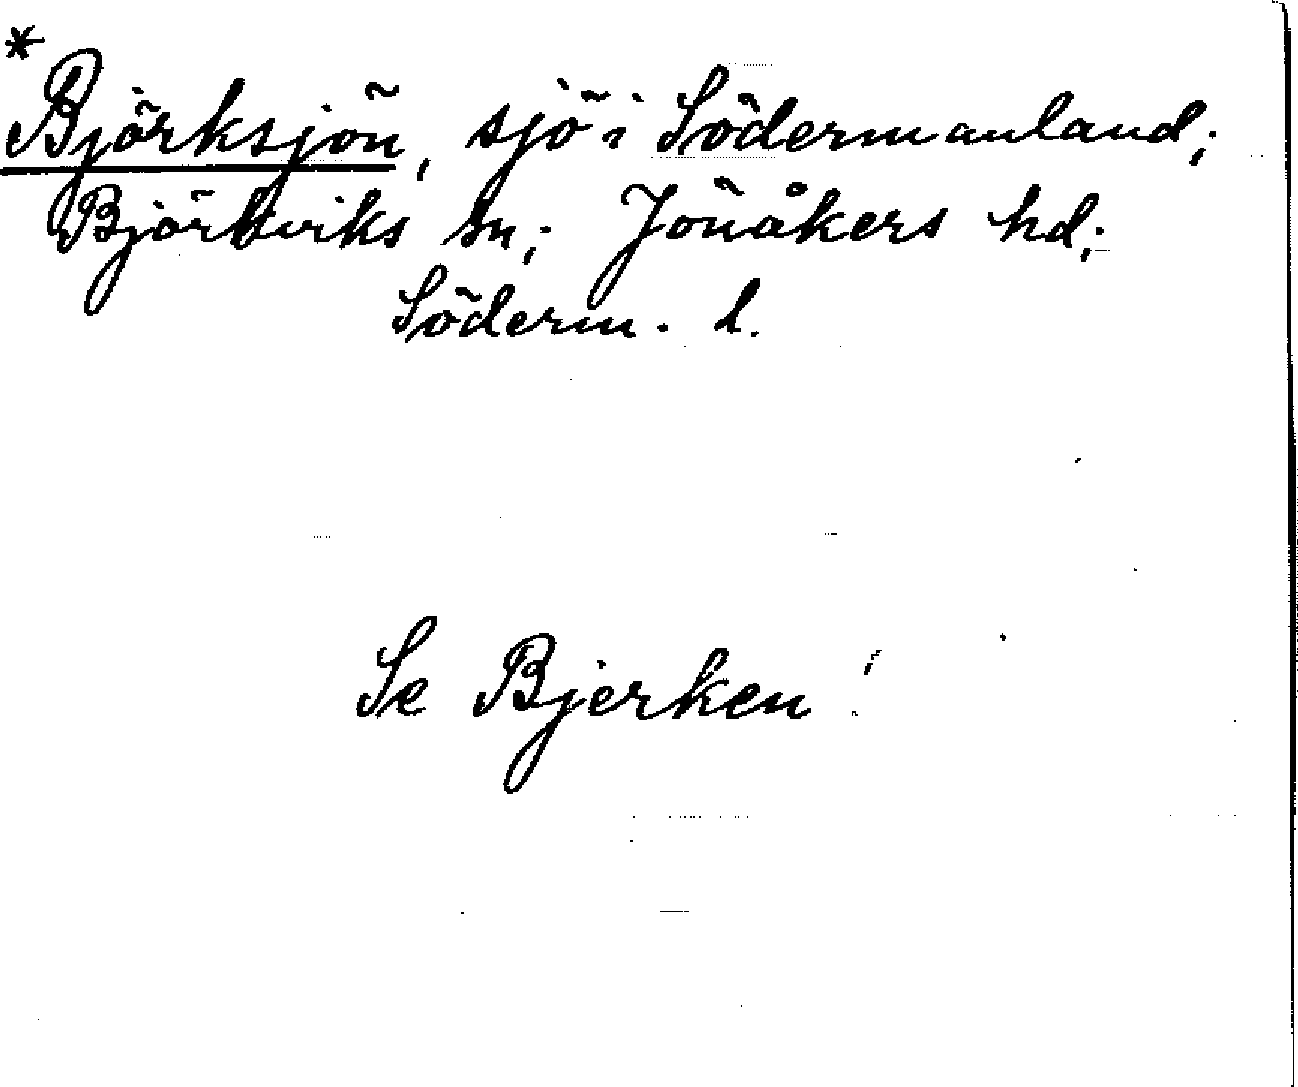 *
Björksjön, sjö i Södermanland;
Björkviks sn; Jönåkers hd;
Söderm. l.
Se Bjerken!